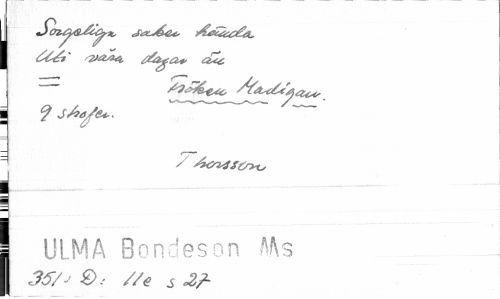 Sorgeliga saker hända
Uti våra dagar än
=
Fröken Madigan.
9 strofer.
Thorsson
ULMA Bondeson Ms
351: D: 11e s 27